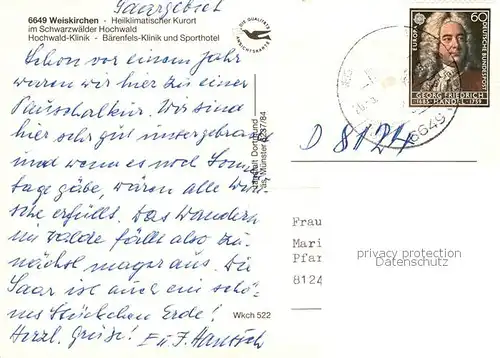 Saargebiet
6649 Weiskirchen - Heilklimatischer Kurort
im Schwarzwälder Hochwald
Hochwald-Klinik - Bärenfels-Klinik und Sporthotel
DIE QUALITÄTS
ANSICHTSKARTE
Schon vor einem Jahr
waren wir hier zu einer
Pauschalkur. Wir sind
hier sehr gut untergebracht
und wenn es noch Sonnen-
tage gäbe, wären alle Wün-
sche erfüllt. Das Wandern
im Walde fällt also zu-
nächst mager aus. Die
Saar ist auch ein schö-
nes Stückchen Erde!
Herzl. Grüße! E. u. J. Hantsch
Wkch 522
EUROPA
60
DEUTSCHE BUNDESPOST
GEORG FRIEDRICH
1685 HÄNDEL 1759
6649
D 8124
Frau
Mari
Pfar
8124
privacy protection
Datenschutz